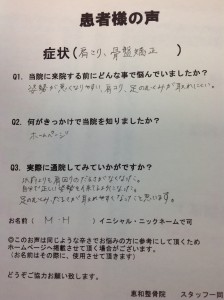 患者様の声
症状(肩こり、骨盤矯正)
Q1. 当院に来院する前にどんな事で悩んでいましたか？
姿勢が悪くなりやすい、肩こり、足のむくみが取れにくい。
Q2. 何がきっかけで当院を知りましたか？
ホームページ
Q3. 実際に通院してみていかがですか？
以前よりも肩回りのだるさがなくなり、
自分で正しい姿勢を意識するようになった。
足のむくみ、だるさが取れやすくなったと思います。
お名前( M・H )イニシャル・ニックネームで可
◎このお声は同じような辛さでお悩みの方に参考にして頂くため
ホームページへ掲載させて頂く場合がございます。
(お名前はその際に、使用させて頂きます)
どうぞご協力お願い致します。
恵和整骨院 スタッフ一同